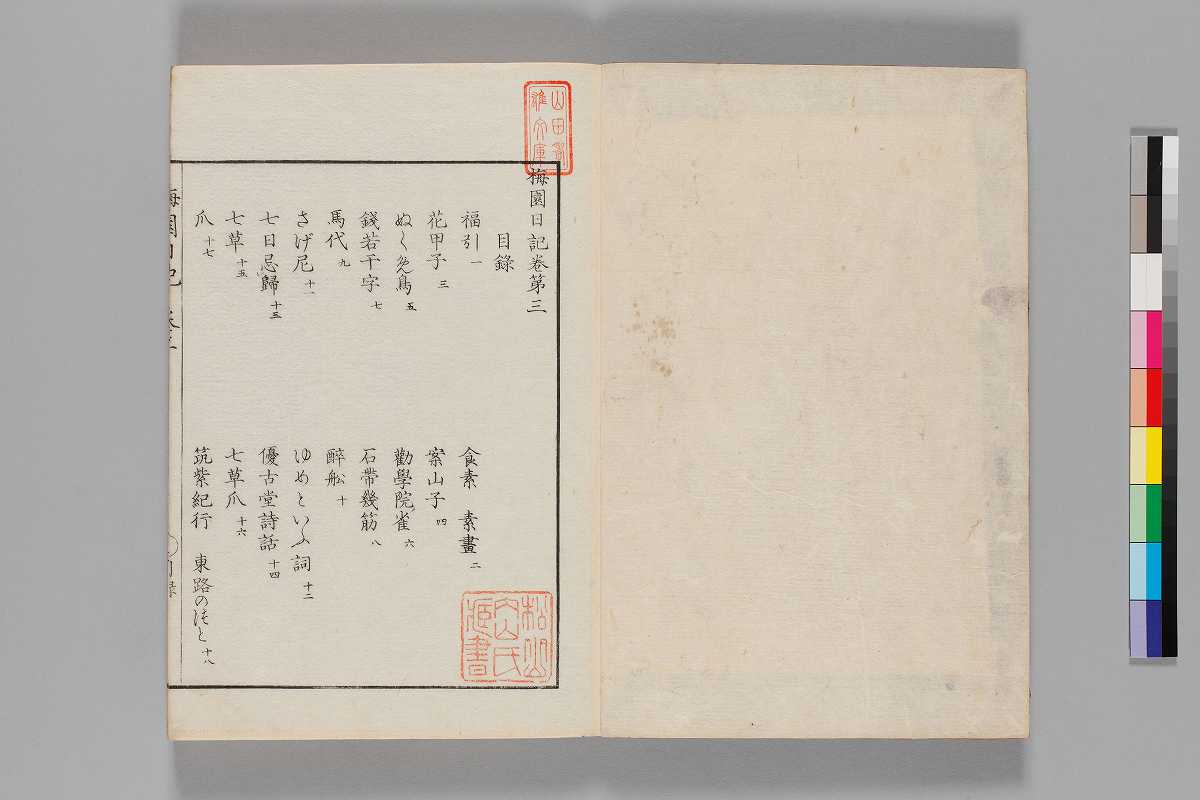 梅園日記卷第三
目錄
福引 一
食素 素畫 二
花甲子 三
案山子 四
ぬくめ鳥 五
勸學院雀 六
錢若干字 七
石帶幾筋 八
馬代 九
醉舩 十
さげ尼 十一
ゆめといふ詞 十二
七日忌歸 十三
優古堂詩話 十四
七草 十五
七草爪 十六
爪 十七
筑紫紀行 東路のつと 十八